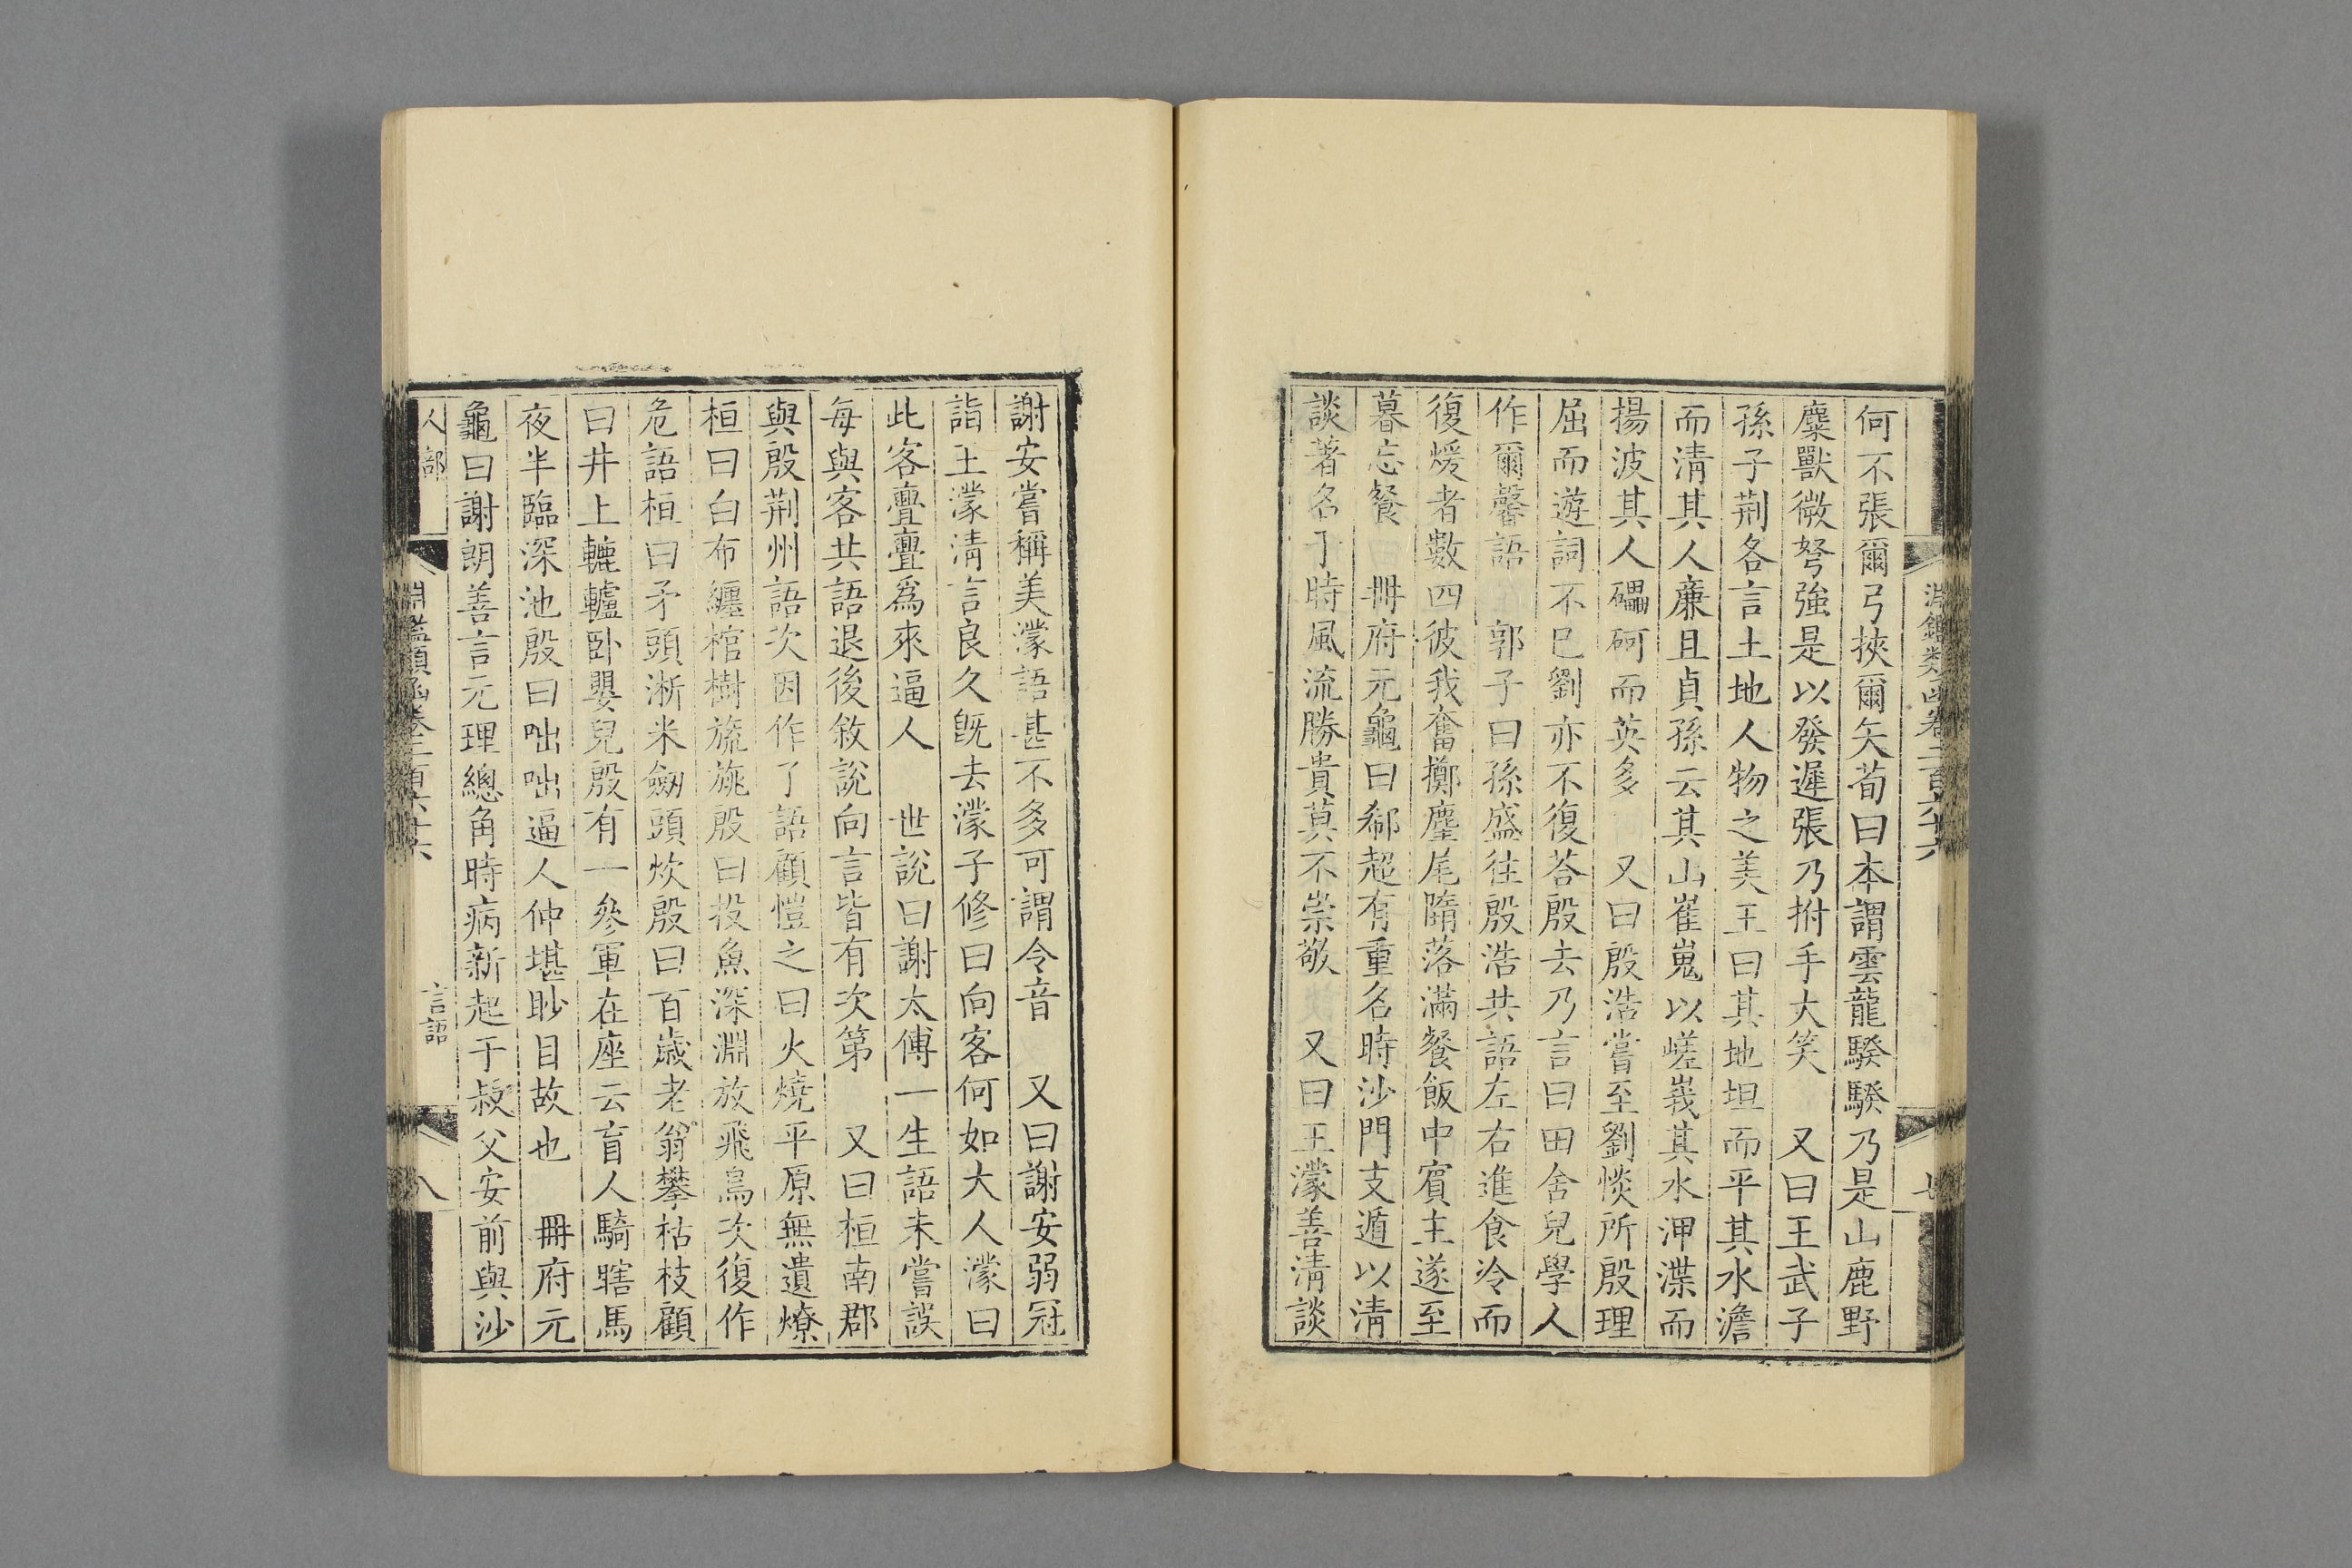 淵鑑類函卷二百六十六
七
何不張爾弓挾爾矢荀曰本謂雲龍騤騤乃是山鹿野
麋獸微弩強是以發遲張乃拊手大笑　又曰王武子
孫子荆各言土地人物之美王曰其地坦而平其水澹
而清其人廉且貞孫云其山嶊嵬以嵯峩其水㳌渫而
揚波其人礧砢而英多　又曰殷浩嘗至劉惔所殷理
屈而遊詞不已劉亦不復荅殷去乃言曰田舍兒學人
作爾馨語　郭子曰孫盛往殷浩共語左右進食冷而
復煖者數四彼我奮擲麈尾隋落滿餐飯中賓主遂至
暮忘餐　冊府元龜曰郗超有重名時沙門支遁以清
談著名于時風流勝貴莫不崇敬　又曰王濛善清談
謝安嘗稱美濛語甚不多可謂令音　又曰謝安弱冠
詣王濛清言良久旣去濛子修曰向客何如大人濛曰
此客亹亹爲來逼人　世說曰謝太傅一生語未嘗誤
每與客共語退後敘說向言皆有次第　又曰桓南郡
與殷荆州語次因作了語顧愷之曰火燒平原無遺燎
桓曰白布纏棺樹旒旐殷曰投魚深淵放飛鳥次復作
危語桓曰矛頭淅米劒頭炊殷曰百歲老翁攀枯枝顧
曰井上轆轤卧嬰兒殷有一參軍在座云盲人騎瞎馬
夜半臨深池殷曰咄咄逼人仲堪眇目故也　冊府元
龜曰謝朗善言元理總角時病新起于叔父安前與沙
人部
淵鑑類函卷二百六十六
言語
八